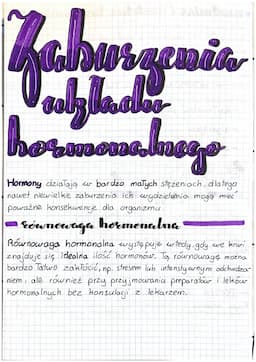 Zaburzenia
układu
hormonalnego
Hormony działają w bardzo małych stężeniach, dlatego
nawet niewielkie zaburzenia ich wydzielania mogą mieć
poważne konsekwencje dla organizmu
równowaga hormonalna
Równowaga hormonalna występuje wtedy, gdy we krwi
znajduje się idealna ilość hormonów. Tą równowagę można
bardzo łatwo zakłócić, np. stresem lub intensywnym odchudza-
niem, ale również przy przyjmowaniu preparatów i leków
hormonalnych bez konsultacji z lekarzem.